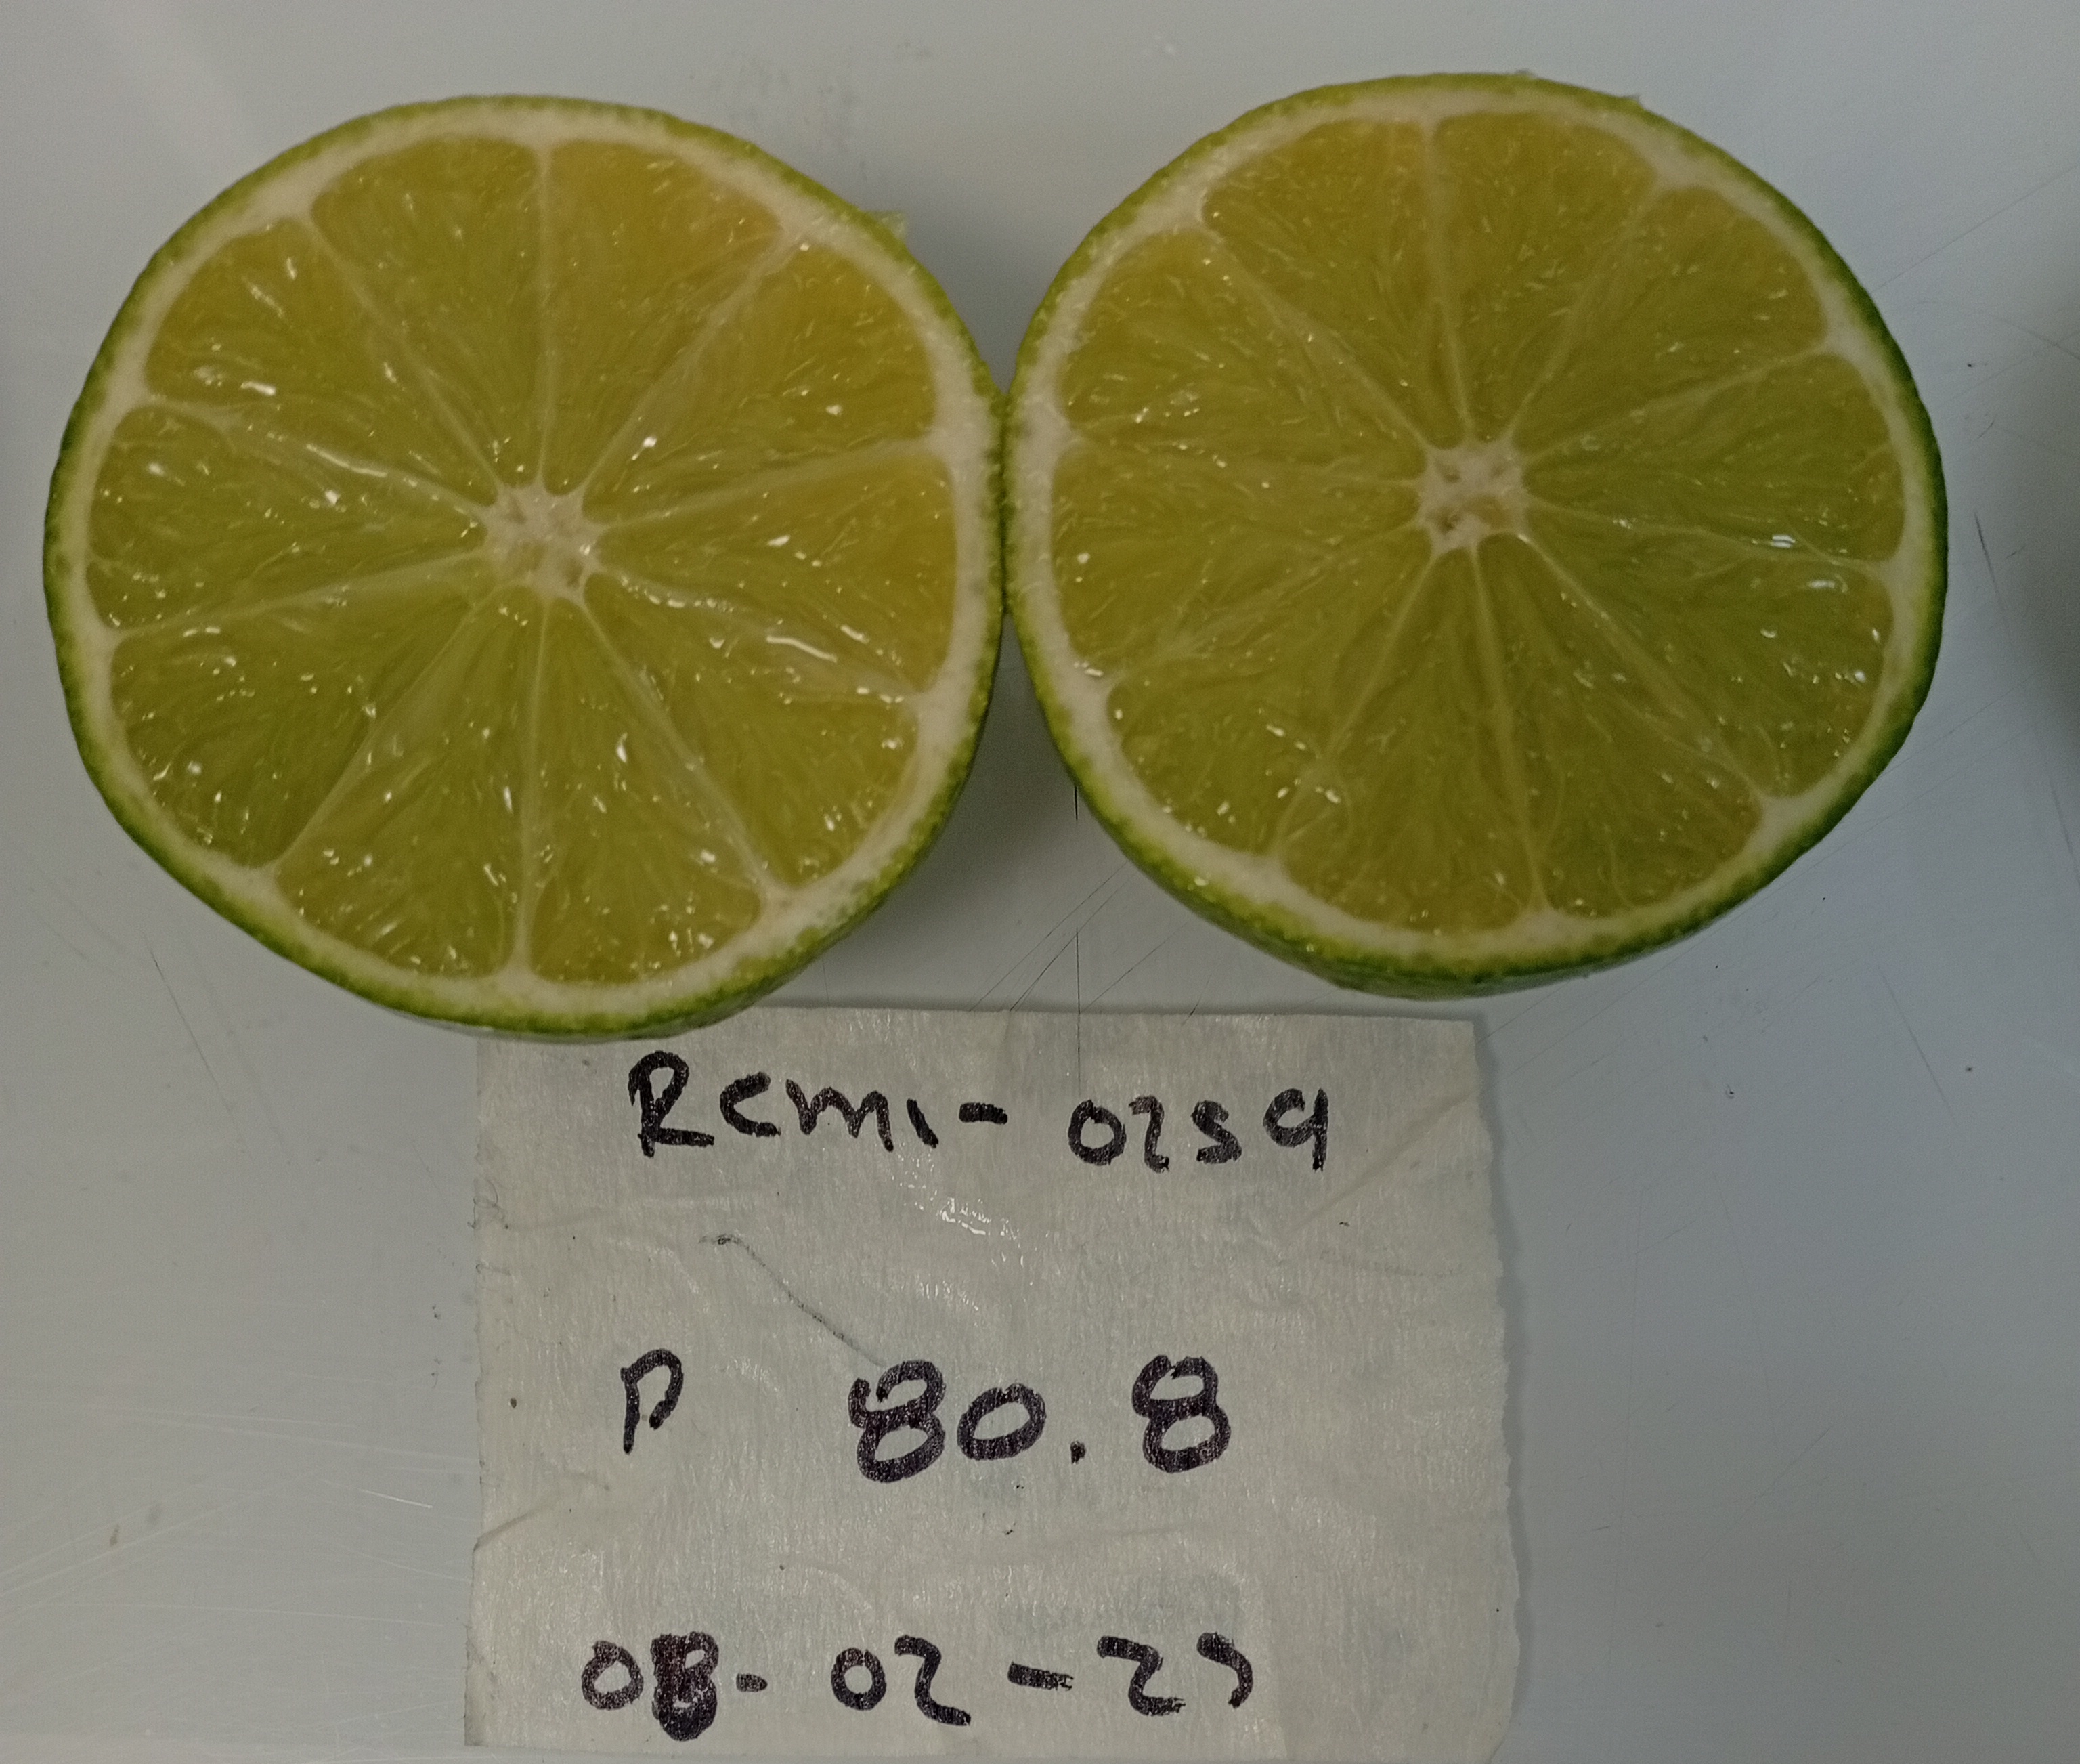 Remi- 0259
P 80.8
08-02-23